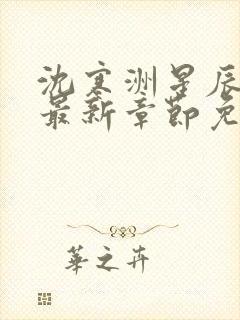 沈寒洲星辰
最新章节免
華之卉